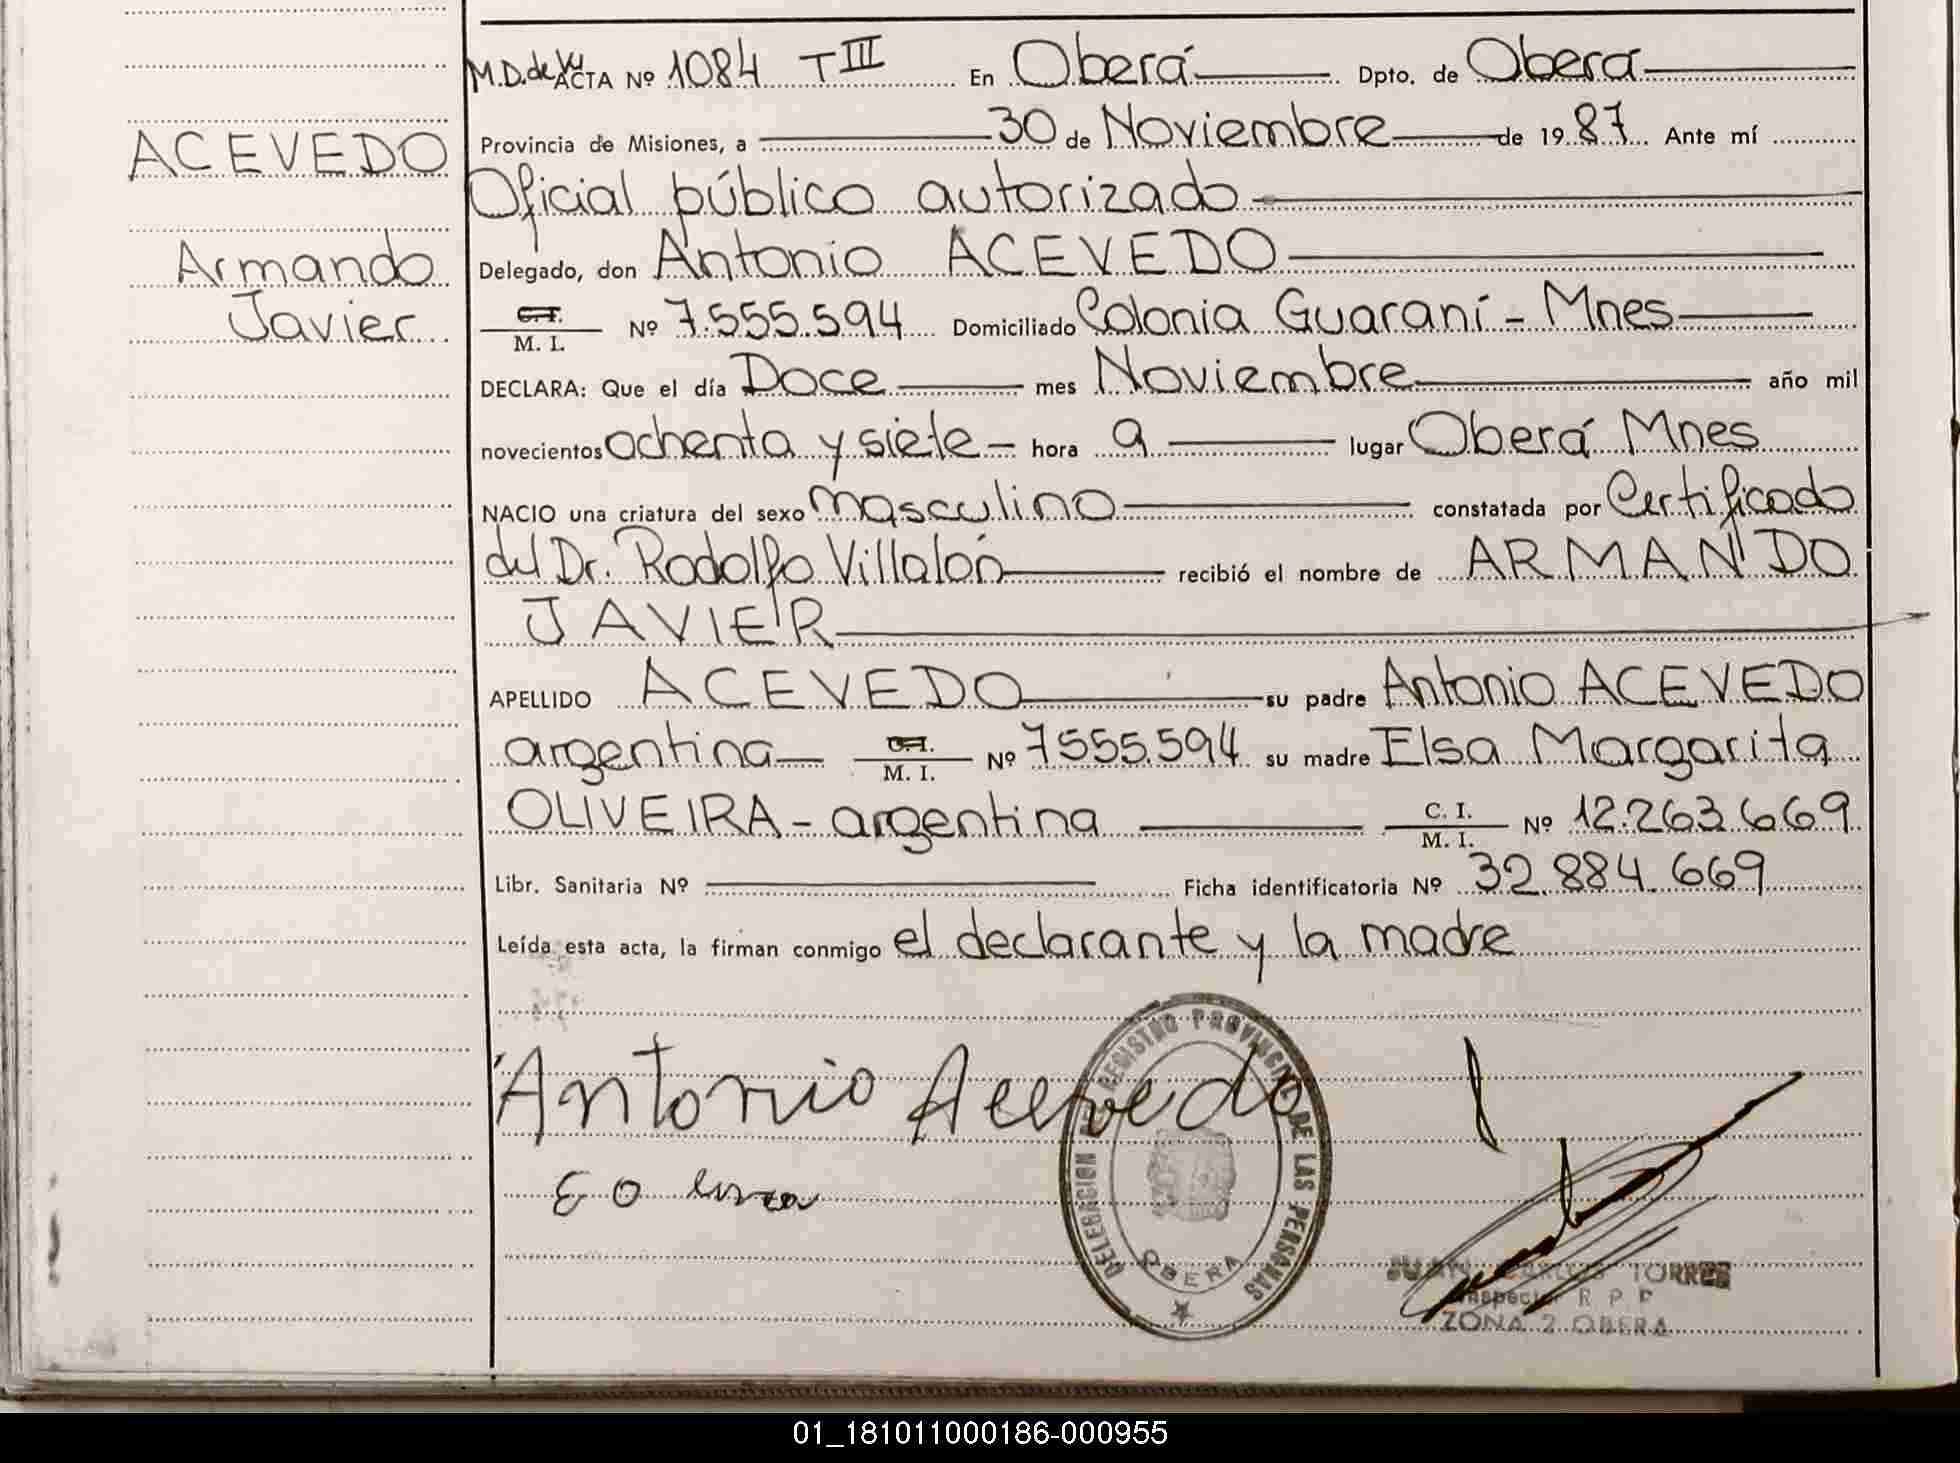 M.D. de Yu ACTA Nº 1084 TIII En Oberá Dpto. de Oberá
ACEVEDO
Armando
Javier
Provincia de Misiones, a 30 de Noviembre de 1987. Ante mí
Oficial público autorizado
Delegado, don Antonio ACEVEDO
C.I. / M. I. Nº 7.555.594 Domiciliado Colonia Guaraní - Mnes
DECLARA: Que el día Doce mes Noviembre año mil
novecientos ochenta y siete - hora 9 lugar Oberá Mnes
NACIO una criatura del sexo masculino constatada por Certificado
del Dr. Rodolfo Villalón recibió el nombre de ARMANDO
JAVIER
APELLIDO ACEVEDO su padre Antonio ACEVEDO
argentina C.I. / M. I. Nº 7555.594 su madre Elsa Margarita
OLIVEIRA - argentina C. I. / M. I. Nº 12.263.669
Libr. Sanitaria Nº Ficha identificatoria Nº 32.884.669
Leída esta acta, la firman conmigo el declarante y la madre
Antonio Acevedo
DELEGACION REGISTRO PROVINCIAL DE LAS PERSONAS
OBERA
JUAN CARLOS TORRES
Inspector R P P
ZONA 2 OBERA
01_181011000186-000955